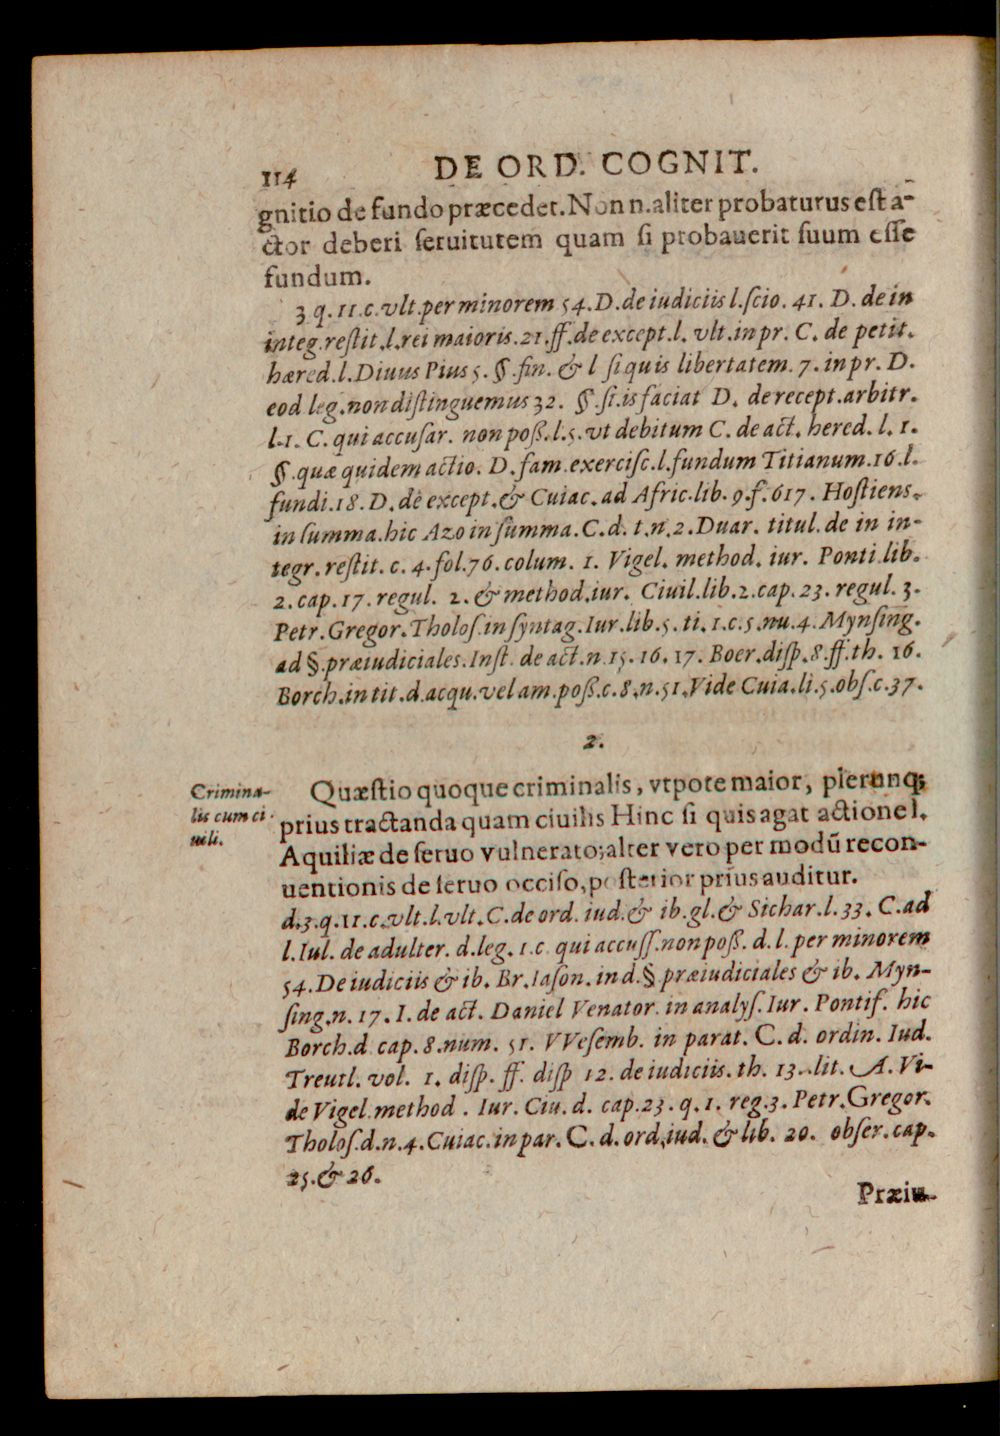 114 DE ORD. COGNIT.
gnitio de fundo præcedet. Non n. aliter probaturus est a-
ctor deberi seruitutem quam si probauerit suum esse
fundum.
3 q. 11. c. vlt. per minorem 54. D. de iudiciis l. scio. 41. D. de in
integ. restit. l. rei maioris. 21. ff. de except. l. vlt. in pr. C. de petit.
hæred. l. Diuus Pius 5. §. fin. & l si quis libertatem. 7. in pr. D.
eod leg. non distinguemus 32. §. si. is faciat D. de recept. arbitr.
l. 1. C. qui accusar. non poß. l. 5. vt debitum C. de act. hered. l. 1.
§. quæ quidem actio. D. fam. exercisc. l. fundum Titianum. 16. l.
fundi. 18. D. de except. & Cuiac. ad Afric. lib. 9. f. 617. Hostiens.
in summa. hic Azo in summa. C. d. t. n. 2. Duar. titul. de in in-
tegr. restit. c. 4. fol. 76. colum. 1. Vigel. method. iur. Ponti lib.
2. cap. 17. regul. 2. & method. iur. Ciuil. lib. 2. cap. 23. regul. 3.
Petr. Gregor. Tholos. in syntag. Iur. lib. 5. ti. 1. c. 5. nu. 4. Mynsing.
ad §. præiudiciales. Inst. de act. n. 15. 16. 17. Boer. disp. 8. ff. th. 16.
Borch. in tit. d. acqu. vel am. poß. c. 8. n. 51. Vide Cuia. li. 5. obs. c. 37.
2.
Crimina-
lis cum ci
uili.
Quæstio quoque criminalis, vtpote maior, plerunq;
prius tractanda quam ciuilis Hinc si quis agat actione l.
Aquiliæ de seruo vulnerato; alter vero per modū recon-
uentionis de seruo occiso, posterior prius auditur.
d. 3. q. 11. c. vlt. l. vlt. C. de ord. iud. & ib. gl. & Sichar. l. 33. C. ad
l. Iul. de adulter. d. leg. 1. c. qui accuss. non poß. d. l. per minorem
54. De iudiciis & ib. Br. Iason. in d. § præiudiciales & ib. Myn-
sing. n. 17. I. de act. Daniel Venator. in analys. Iur. Pontif. hic
Borch. d cap. 8. num. 51. VVesemb. in parat. C. d. ordin. Iud.
Treutl. vol. 1. disp. ff. disp 12. de iudiciis. th. 13. lit. A. Vi-
de Vigel method. Iur. Ciu. d. cap. 23. q. 1. reg. 3. Petr. Gregor.
Tholos. d. n. 4. Cuiac. in par. C. d. ord. iud. & lib. 20. obser. cap.
25. & 26.
Præiu-